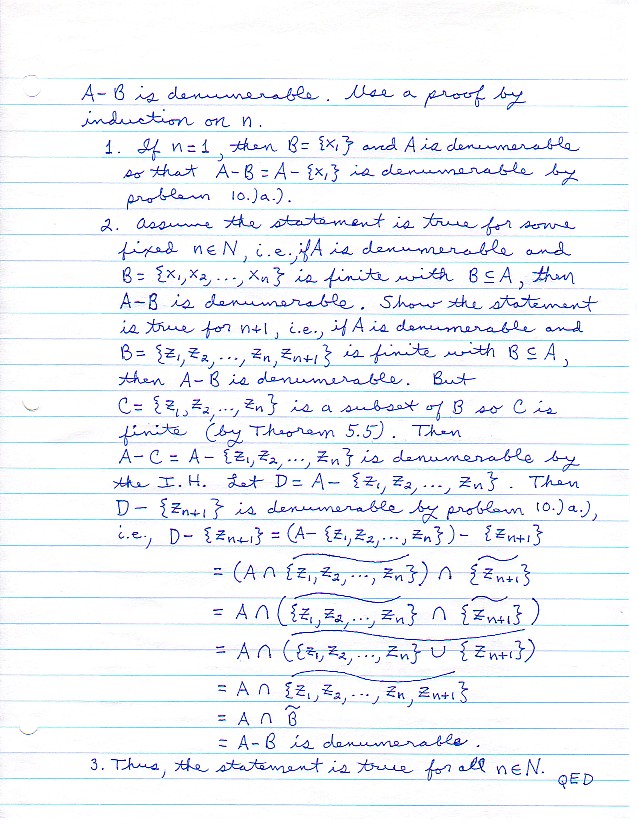 A-B is denumerable. Use a proof by
induction on n.
1. If n=1, then B= {x₁} and A is denumerable
so that A-B = A- {x₁} is denumerable by
problem 10.)a.).
2. Assume the statement is true for some
fixed n∈N, i.e., if A is denumerable and
B= {x₁, x₂, ..., xₙ} is finite with B⊆A, then
A-B is denumerable. Show the statement
is true for n+1, i.e., if A is denumerable and
B= {z₁, z₂, ..., zₙ, zₙ₊₁} is finite with B⊆A,
then A-B is denumerable. But
C= {z₁, z₂, ..., zₙ} is a subset of B so C is
finite (by Theorem 5.5). Then
A-C = A- {z₁, z₂, ..., zₙ} is denumerable by
the I.H. Let D= A- {z₁, z₂, ..., zₙ}. Then
D- {zₙ₊₁} is denumerable by problem 10.)a.),
i.e., D- {zₙ₊₁} = (A- {z₁, z₂, ..., zₙ}) - {zₙ₊₁}
= (A ∩ {z₁, z₂, ..., zₙ}~) ∩ {zₙ₊₁}~
= A ∩ ({z₁, z₂, ..., zₙ}~ ∩ {zₙ₊₁}~)
= A ∩ ({z₁, z₂, ..., zₙ} ∪ {zₙ₊₁})~
= A ∩ {z₁, z₂, ..., zₙ, zₙ₊₁}~
= A ∩ B̃
= A-B is denumerable.
3. Thus, the statement is true for all n∈N.
QED